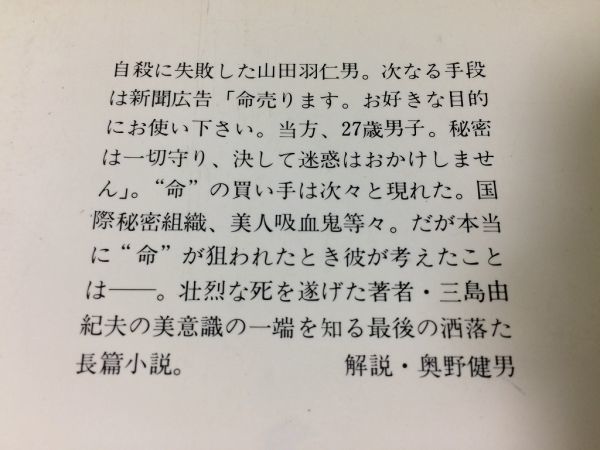 自殺に失敗した山田羽仁男。次なる手段
は新聞広告「命売ります。お好きな目的
にお使い下さい。当方、27歳男子。秘密
は一切守り、決して迷惑はおかけしませ
ん」。“命”の買い手は次々と現れた。国
際秘密組織、美人吸血鬼等々。だが本当
に“命”が狙われたとき彼が考えたこと
は――。壮烈な死を遂げた著者・三島由
紀夫の美意識の一端を知る最後の洒落た
長篇小説。 解説・奥野健男